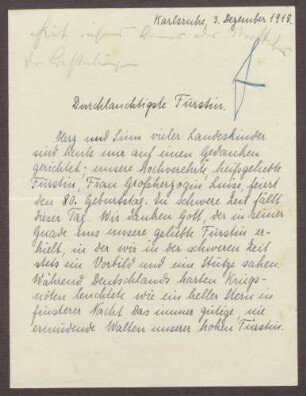 Karlsruhe, 3. Dezember 1918.
Durchlauchtigste Fürstin.
Herz und Sinn vieler Landeskinder
sind heute nur auf einen Gedanken
gerichtet - unsere Hochverehrte, heißgeliebte
Fürstin, Frau Großherzogin Luise, feiert
den 80. Geburtstag. In schwere Zeit fällt
dieser Tag. Wir danken Gott, der in seiner
Gnade uns unsere geliebte Fürstin er-
hielt, in der wir in der schweren Zeit
stets ein Vorbild und eine Stütze sahen.
Während Deutschlands harten Kriegs-
nöten leuchtete wie ein heller Stern in
finsterer Nacht das immer gütige, nie
ermüdende Walten unserer hohen Fürstin.